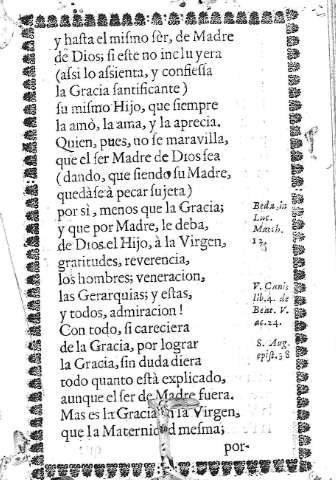 y hasta el mismo sèr, de Madre
de Dios; si este no incluyera
(assi lo assienta, y confiessa
la Gracia santificante)
su mismo Hijo, que siempre
la amò, la ama, y la aprecia.
Quien, pues, no se maravilla,
que el ser Madre de Dios sea
(dando, que siendo su Madre,
quedàse à pecar sujeta)
por sì, menos que la Gracia;
y que por Madre, le deba,
de Dios el Hijo, à la Virgen,
gratitudes, reverencia,
los hombres; veneracion,
las Gerarquias; y estas,
y todos, admiracion!
Con todo, si careciera
de la Gracia, por lograr
la Gracia, sin duda diera
todo quanto està explicado,
aunque el ser de Madre fuera.
Mas es la Gracia en la Virgen,
que la Maternidad mesma;
por-
Beda, in
Luc.
Matth.
V. Canis
lib. 4. de
Beat. V.
ac. 24.
S. Aug.
epist. 38